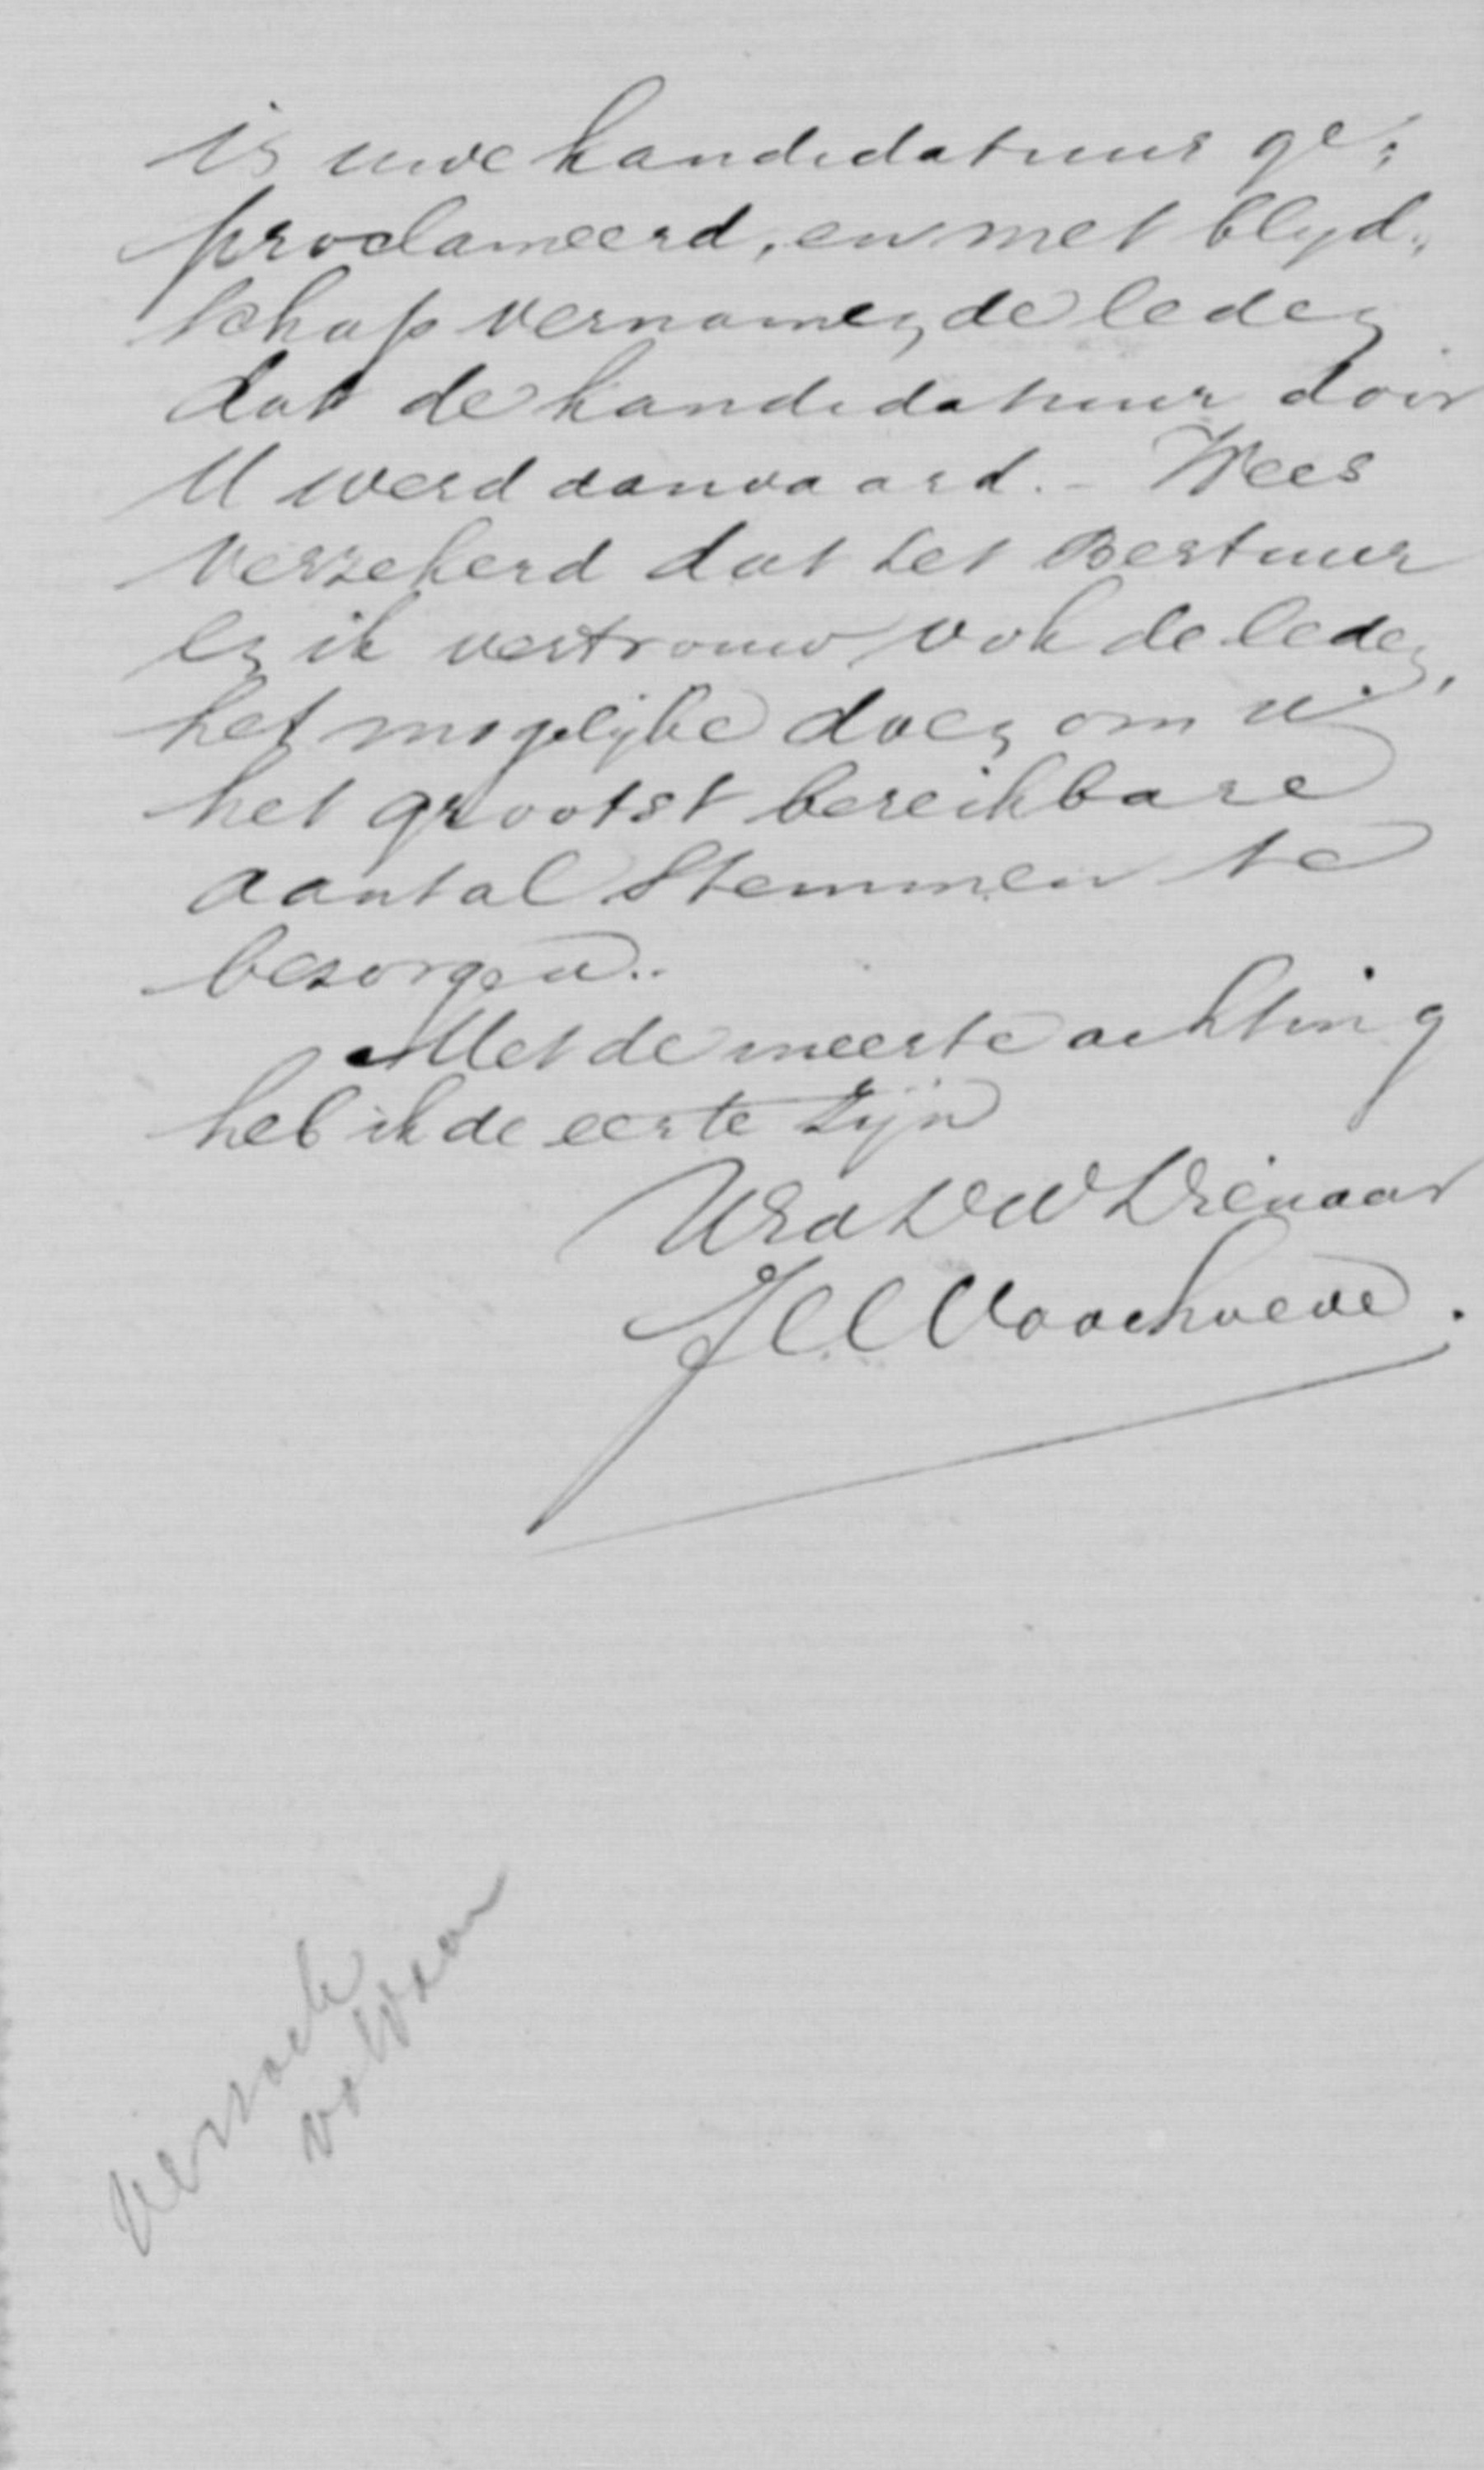 is uwe kandidatuur ge-
proclameerd, en met blyd-
schap vernamen de leden
dat de kandidatuur door
U werd aanvaard. - Wees
verzekerd dat het Bestuur
en ik vertrouw ook de leden,
het mogelijke doen om u
het grootst bereikbare
aantal stemmen te
bezorgen.
Met de meeste achting
heb ik de eer te zijn
UEd DW Dienaar
J C C Voorhoeve.
verzoek
voldaan